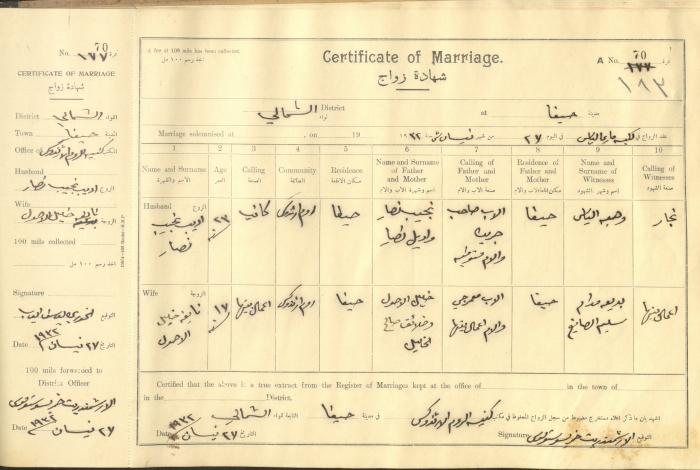 70
No. ١٧٧ نمرة
CERTIFICATE OF MARRIAGE
شهادة زواج
District الشمالي لواء
Town حيفا
Office of كنيسة الروم الارثوذكس
Husband
اديب نجيب نصار الزوج
Wife
نايفه خليل الاحدل الزوجة
100 mils collected
اخذ رسم ١٠٠ مل
Signature التوقيع
Date ٢٧ نيسان ١٩٣٢ التاريخ
100 mils forwarded to
District Officer
التوقيع
Date ٢٧ نيسان ١٩٣٢ التاريخ
A fee of 100 mils has been collected.
اخذ رسم ١٠٠ مل
Certificate of Marriage.
شهادة زواج
70
A No. 177 نمرة
١٩٣
District الشمالي لواء
at حيفا مدينة
Marriage solemnised at , on 19
عقد الزواج في كنيسة مار الياس في اليوم ٢٧ من شهر نيسان سنة ١٩٣٢
1 2 3 4 5 6 7 8 9 10
Name and Surname الاسم والشهرة
Age العمر
Calling الصنعة
Community الطائفة
Residence مكان الاقامة
Name and Surname of Father and Mother اسم وشهرة الاب والام
Calling of Father and Mother صنعة الاب والام
Residence of Father and Mother مكان اقامة الاب والام
Name and Surname of Witnesses اسم وشهرة الشهود
Calling of Witnesses صنعة الشهود
Husband الزوج
اديب نجيب نصار
٢٣ سنة
كاتب
روم ارثوذكس
حيفا
نجيب نصار واديل نصار
الاب صاحب جريدة والام متوفية
حيفا
وهبه الياس
نجار
Wife الزوجة
نايفه خليل الاحدل
١٧ سنة
اعمال بيتها
روم ارثوذكس
حيفا
خليل الاحدل
الاب والام اعمال بيتها
حيفا
بديعه مدام سليم الصايغ
اعمال بيتها
Certified that the above is a true extract from the Register of Marriages kept at the office of in the town of
in the District.
اشهد بان ما ذكر اعلاه مستخرج مضبوط من سجل الزواج المحفوظ في مكتب كنيسة الروم الارثوذكس في مدينة حيفا التابعة لواء الشمالي
Date ٢٧ نيسان ١٩٣٢ التاريخ
Signature التوقيع